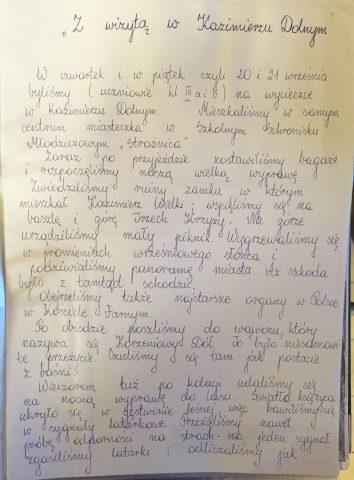 „Z wizytą w Kazimierzu Dolnym"
W czwartek i w piątek czyli 20 i 21 września
byliśmy (uczniowie kl. III a i b) na wycieczce
w Kazimierzu Dolnym. Mieszkaliśmy w samym
centrum miasteczka w Szkolnym Schronisku
Młodzieżowym „Strażnica"
Zaraz po przyjeździe zostawiliśmy bagaże
i rozpoczęliśmy naszą wielką wyprawę.
Zwiedziliśmy ruiny zamku w którym
mieszkał Kazimierz Wielki, wspięliśmy się na
basztę i górę Trzech Krzyży. Na górze
urządziliśmy mały piknik. Wygrzewaliśmy się
w promieniach wrześniowego słońca i
podziwialiśmy panoramę miasta. Aż szkoda
było z tamtąd schodzić.
Obejrzeliśmy także najstarsze organy w Polsce
w Kościele Farnym.
Po obiedzie poszliśmy do wąwozu, który
nazywa się Korzeniowy Dół. To było niesamowi-
te przeżycie. Czuliśmy się tam jak postacie
z baśni.
Wieczorem tuż po kolacji udaliśmy się
na nocną wyprawę do lasu. Światło księżyca
ukryło się w gęstwinie leśnej więc bawiliśmy się
w sygnały latarkowe. Przeżyliśmy nawet
próbę odporności na strach - na jeden sygnał
zgasiliśmy latarki i odliczaliśmy jak